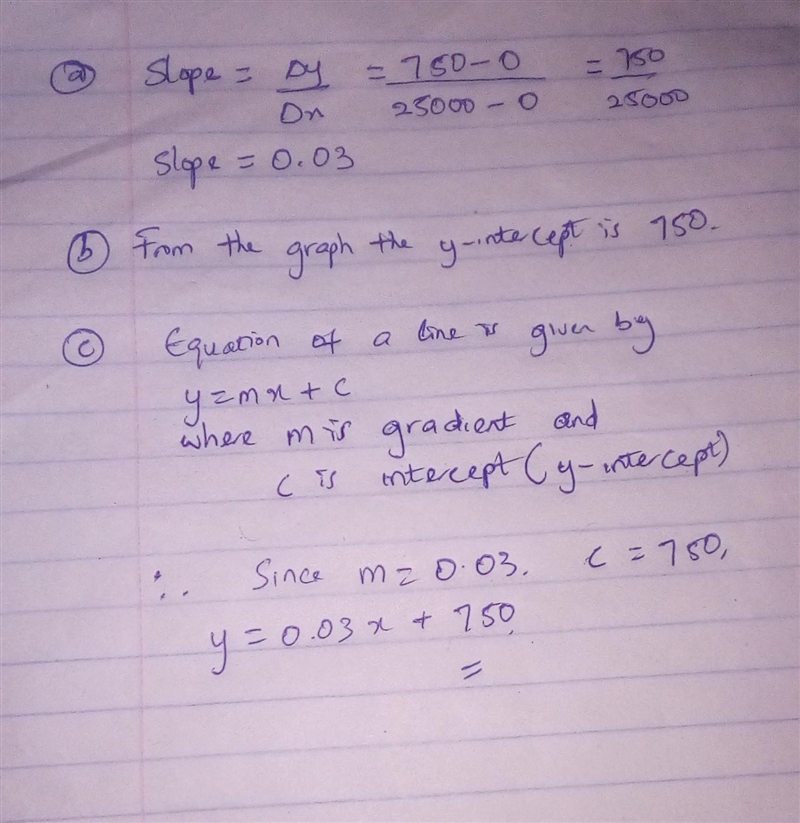 (a) Slope = Δy/Δx = 750-0/25000-0 = 750/25000
Slope = 0.03
(b) From the graph the y-intercept is 750.
(c) Equation of a line is given by
y=mx+c
where m is gradient and
c is intercept (y-intercept)
∴ Since m=0.03. c=750,
y=0.03x + 750
=